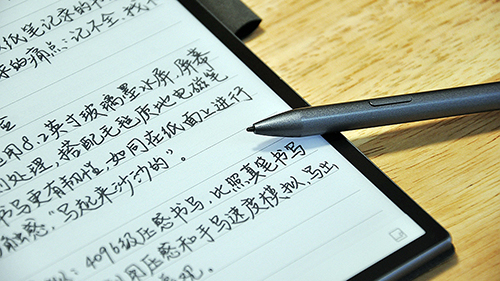 纸笔记录的
的痛点：记不全，找不
用8.2英寸玻璃墨水屏，屏幕
处理，搭配无超质地电磁笔
书写更有韧性，如同在纸面上进行
触感，“写起来沙沙的”。
：4096级压感书写，比照真笔书写
用压感和手写速度模拟，写出